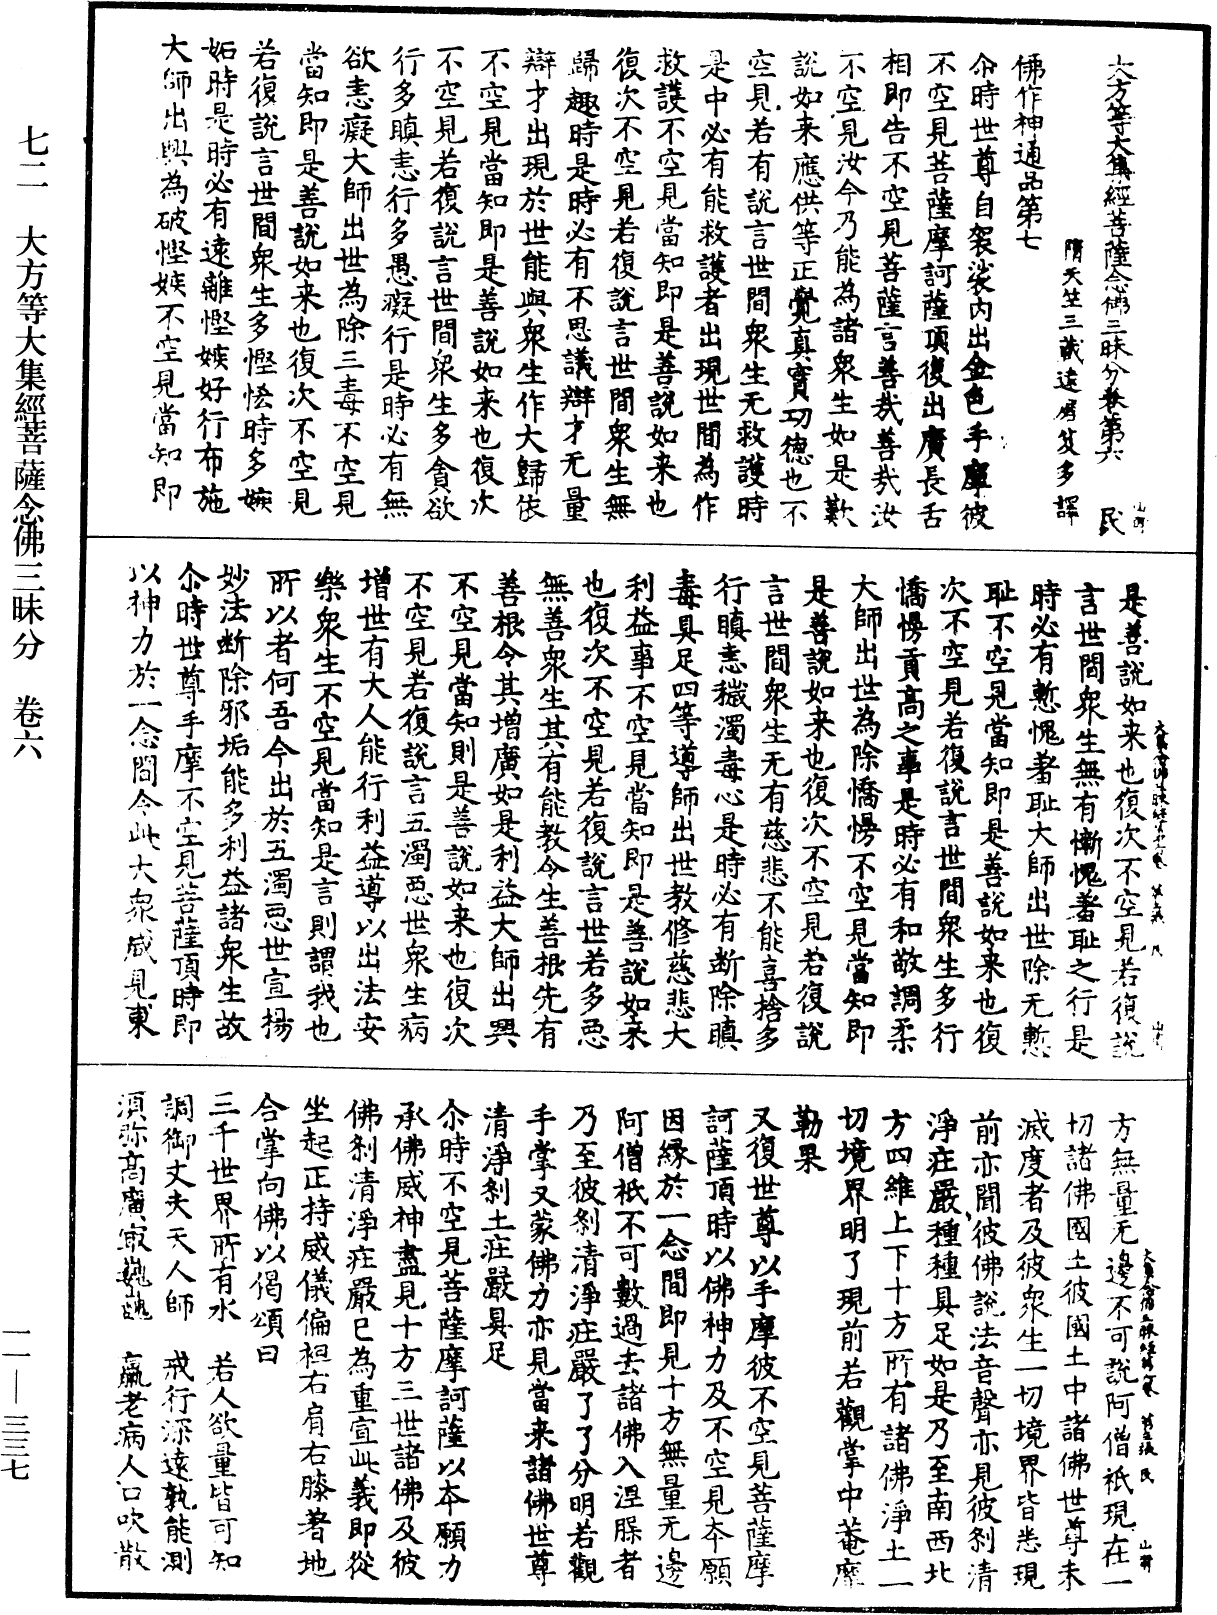 大方等大集經菩薩念佛三昧分卷第六 民
隋天竺三藏達磨笈多譯
佛作神通品第七
尒時世尊自袈裟內出金色手摩彼
不空見菩薩摩訶薩頂復出廣長舌
相即告不空見菩薩言善哉善哉汝
不空見汝今乃能為諸衆生如是歎
說如来應供等正覺真實功德也不
空見若有說言世間衆生无救護時
是中必有能救護者出現世間為作
救護不空見當知即是善說如来也
復次不空見若復說言世間衆生無
歸趣時是時必有不思議辯才无量
辯才出現於世能與衆生作大歸依
不空見當知即是善說如来也復次
不空見若復說言世間衆生多貪欲
行多瞋恚行多愚癡行是時必有無
欲恚癡大師出世為除三毒不空見
當知即是善說如来也復次不空見
若復說言世間衆生多慳悋時多嫉
妬時是時必有遠離慳嫉好行布施
大師出興為破慳嫉不空見當知即
是善說如来也復次不空見若復說
言世間衆生無有慚愧羞恥之行是
時必有慙愧羞耻大師出世除无慙
耻不空見當知即是善說如来也復
次不空見若復說言世間衆生多行
憍慢貢高之事是時必有和敬調柔
大師出世為除憍慢不空見當知即
是善說如来也復次不空見若復說
言世間衆生无有慈悲不能喜捨多
行瞋恚穢濁毒心是時必有断除瞋
毒具足四等導師出世教修慈悲大
利益事不空見當知即是善說如来
也復次不空見若復說言世若多惡
無善衆生其有能教令生善根先有
善根令其增廣如是利益大師出興
不空見當知則是善說如来也復次
不空見若復說言五濁惡世衆生病
增世有大人能行利益導以出法安
樂衆生不空見當知是言則謂我也
所以者何吾今出於五濁惡世宣揚
妙法断除邪垢能多利益諸衆生故
尒時世尊手摩不空見菩薩頂時即
以神力於一念間令此大衆咸見東
方無量无邊不可說阿僧祇現在一
切諸佛國土彼國土中諸佛世尊未
滅度者及彼衆生一切境界皆悉現
前亦聞彼佛說法音聲亦見彼剎清
淨莊嚴種種具足如是乃至南西北
方四維上下十方所有諸佛淨土一
切境界明了現前若觀掌中菴摩
勒果
又復世尊以手摩彼不空見菩薩摩
訶薩頂時以佛神力及不空見本願
因緣於一念間即見十方無量无邊
阿僧祇不可數過去諸佛入涅槃者
乃至彼剎清淨莊嚴了了分明若觀
手掌又蒙佛力亦見當来諸佛世尊
清淨剎土莊嚴具足
尒時不空見菩薩摩訶薩以本願力
承佛威神盡見十方三世諸佛及彼
佛剎清淨莊嚴已為重宣此義即從
坐起正持威儀偏袒右肩右膝著地
合掌向佛以偈頌曰
三千世界所有水 若人欲量皆可知
調御丈夫天人師 戒行深遠孰能測
須弥高廣㝡巍巍 羸老病人口吹散
七二 大方等大集經菩薩念佛三昧分 卷六
一一—三三七